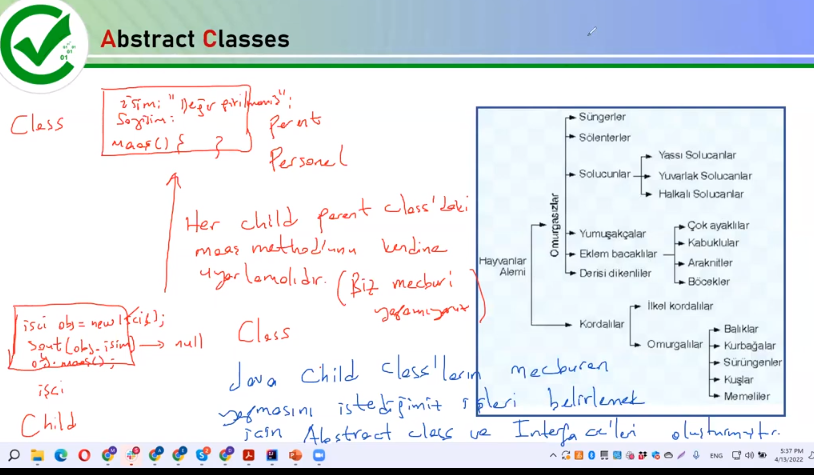 Abstract Classes
Class
isim: "Değer girilmemiş";
Soyisim:
maas() { }
Parent
Personel
Her child parent class'daki
maas method'unu kendine
uyarlamalıdır.
(Biz mecburi
yapamıyoruz)
isci obj = new Isci();
Sout(obj.isim) → null
obj.maas();
işçi
Child
Class
Java Child class'ların mecburen
yapmasını istediğimiz işleri belirlemek
için Abstract class ve Interface'leri oluşturmuştur.
Hayvanlar
Alemi
Omurgasızlar
Süngerler
Sölenterler
Solucunlar
Yassı Solucanlar
Yuvarlak Solucanlar
Halkalı Solucanlar
Yumuşakçalar
Eklem bacaklılar
Çok ayaklılar
Kabuklular
Araknitler
Böcekler
Derisi dikenliler
Kordalılar
İlkel kordalılar
Omurgalılar
Balıklar
Kurbağalar
Sürüngenler
Kuşlar
Memeliler
5:37 PM
4/13/2022